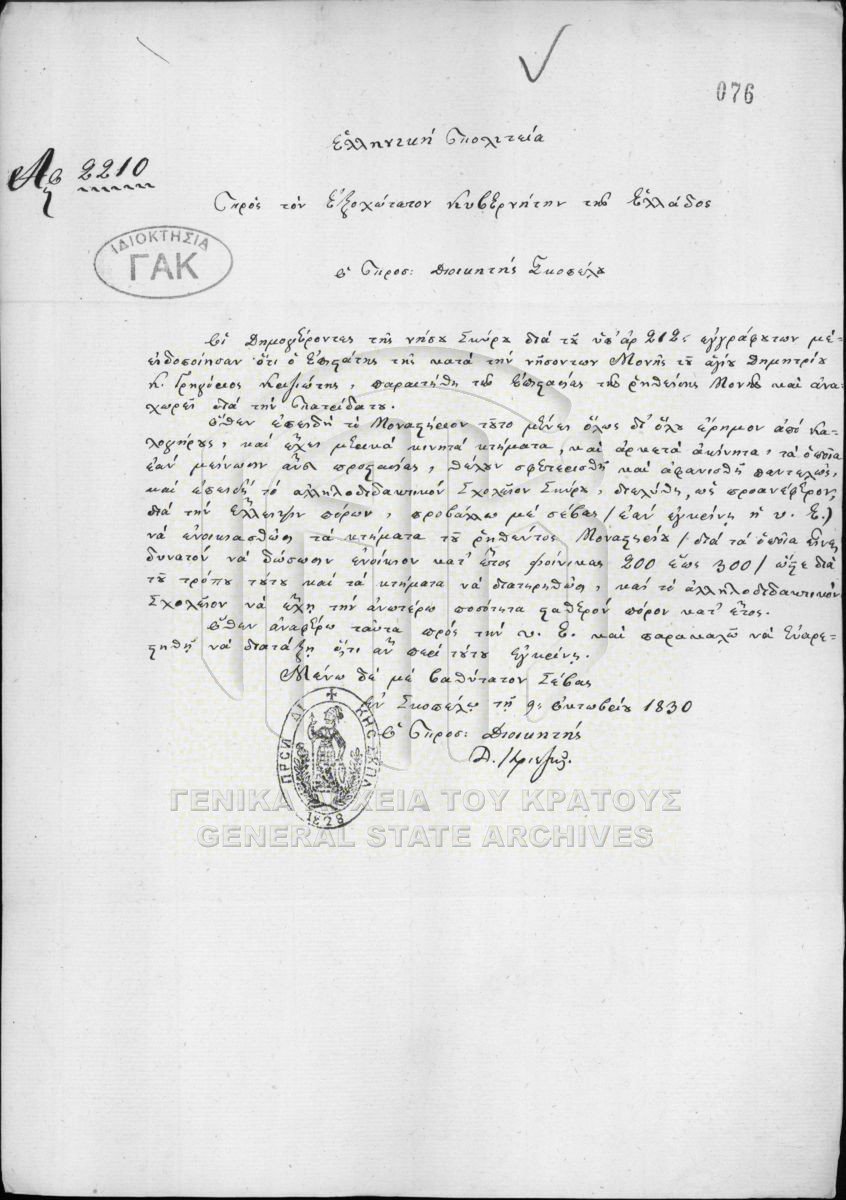 076
Ἑλληνική Πολιτεία
Ἀρ 2210
Πρός τόν Ἐξοχώτατον Κυβερνήτην τῆς Ἑλλάδος
ΙΔΙΟΚΤΗΣΙΑ
ΓΑΚ
Ὁ Προσ: Διοικητής Σκοπέλου
Οἱ Δημογέροντες τῆς νήσου Σκύρου διά τοῦ ὑπ' ἀρ 212: ἐγγράφου των μέ
εἰδοποίησαν ὅτι ὁ ἐπιστάτης τῆς κατά τήν νῆσον των Μονῆς τοῦ ἁγίου Δημητρίου
Κ. Γρηγόριος, παραιτήθη τῆς ἐπιστασίας τῆς ῥηθείσης Μονῆς καί ἀνα-
χωρεῖ διά τήν Πατρίδα του.
Ὅθεν ἐπειδή τό Μοναστήριον τοῦτο μένει ὅλως δι' ὅλου ἔρημον ἀπό κα-
λογήρους, καί ἔχει μερικά κινητά κτήματα, καί ἀρκετά ἀκίνητα, τά ὁποῖα
ἐάν μείνωσιν ἄνευ προστασίας, θέλουν σφετερισθῆ καί ἀφανισθῆ παντελῶς,
καί ἐπειδή τό ἀλληλοδιδακτικόν Σχολεῖον Σκύρου, διελύθη, ὡς προανέφερον,
διά τήν ἔλλειψιν πόρων, προβάλλω μέ σέβας /ἐάν ἐγκρίνῃ ἡ υ. Ἐ./
νά ἐνοικιασθῶσι τά κτήματα τοῦ ῥηθέντος Μοναστηρίου /διά τά ὁποῖα εἶνε
δυνατόν νά δώσωσιν ἐνοίκιον κατ' ἔτος φοίνικας 200 ἕως 300/ ὥστε διά
τοῦ τρόπου τούτου καί τά κτήματα νά διατηρηθῶσι, καί τό ἀλληλοδιδακτικόν
Σχολεῖον νά ἔχῃ τήν ἀνωτέρω ποσότητα σταθερόν πόρον κατ' ἔτος.
Ὅθεν ἀναφέρω ταῦτα πρός τήν υ. Ἐ. καί παρακαλῶ νά εὐαρε-
στηθῇ νά διατάξῃ ὅ,τι ἄν περί τούτου ἐγκρίνῃ.
Μένω δέ μέ βαθύτατον Σέβας
Ἐν Σκοπέλῳ τῇ 9: Ὀκτωβρίου 1830
Ὁ Προσ: Διοικητής
ΠΡΣΙ ΔΙ ΚΗΣ ΣΚΠΛ
1828
ΓΕΝΙΚΑ ΑΡΧΕΙΑ ΤΟΥ ΚΡΑΤΟΥΣ
GENERAL STATE ARCHIVES